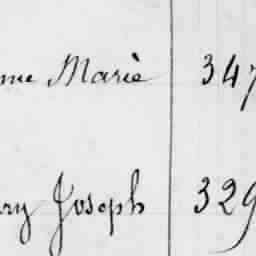 Marie 347
Joseph 329